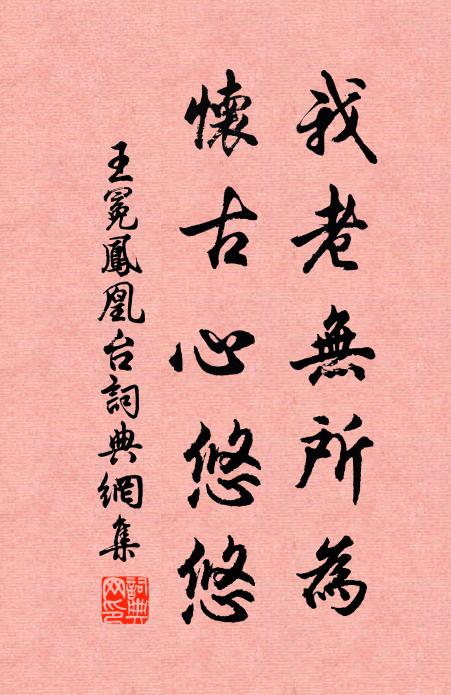 我老無所為
懷古心悠悠
王冕鳳凰台詞典網集
詞典網印